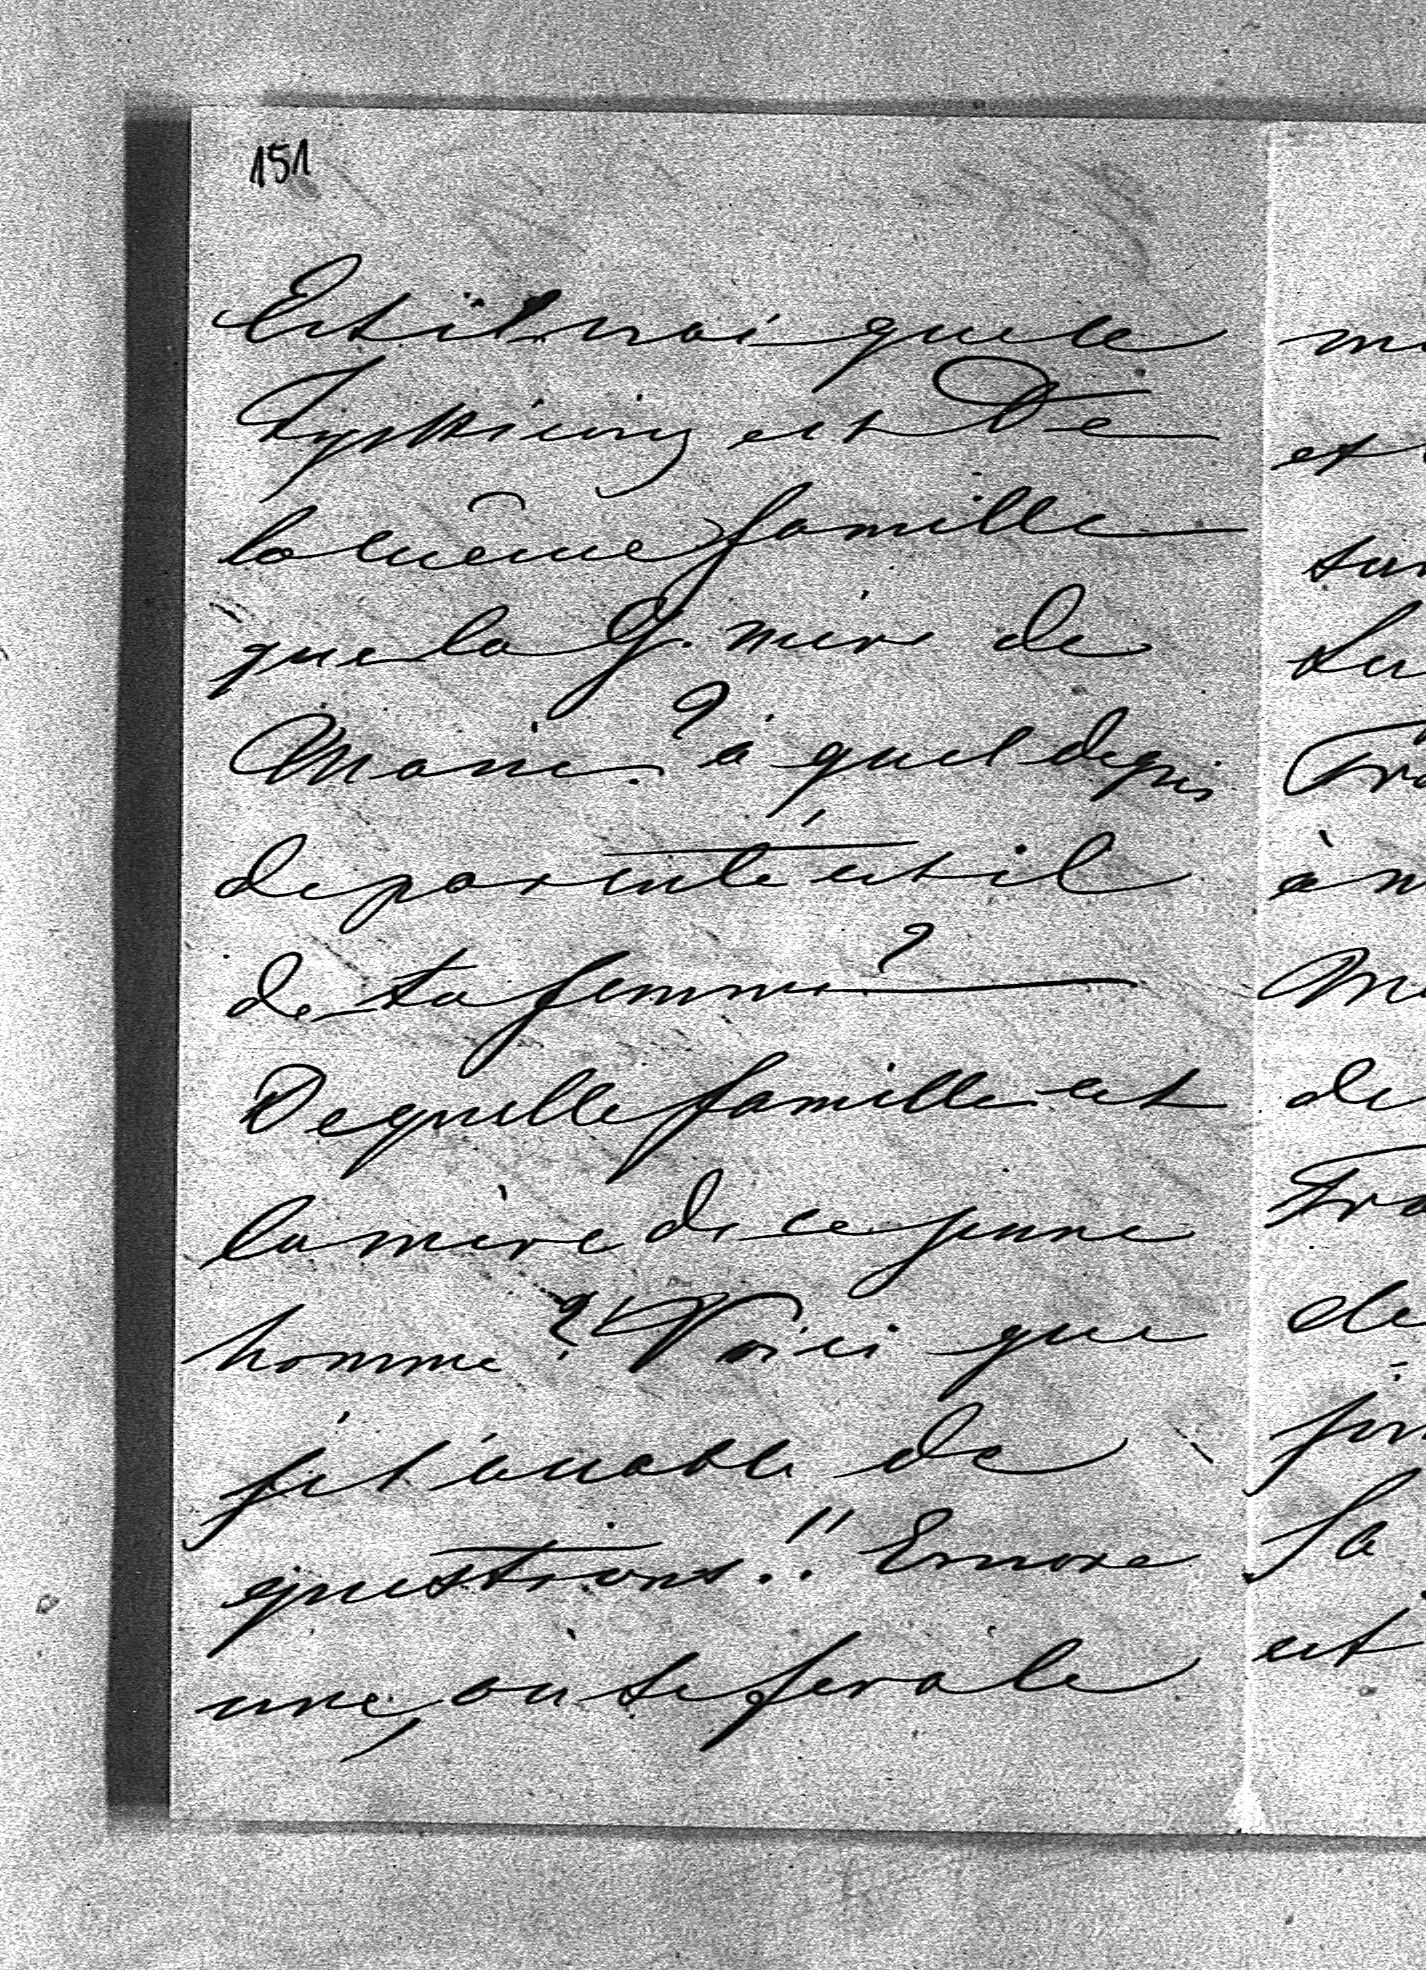 151
Est il vrai que le
Tyszkiewicz est de
la même famille
que la G. mère de
Marie? à quel degrés
de parenté est il
de ta femme?
De quelle famille est
la mère de ce jeune
homme? Voici que
je t'accable de
questions!! Encore
une, où se fera le
et
à m
de
Fra
de
Sa
est